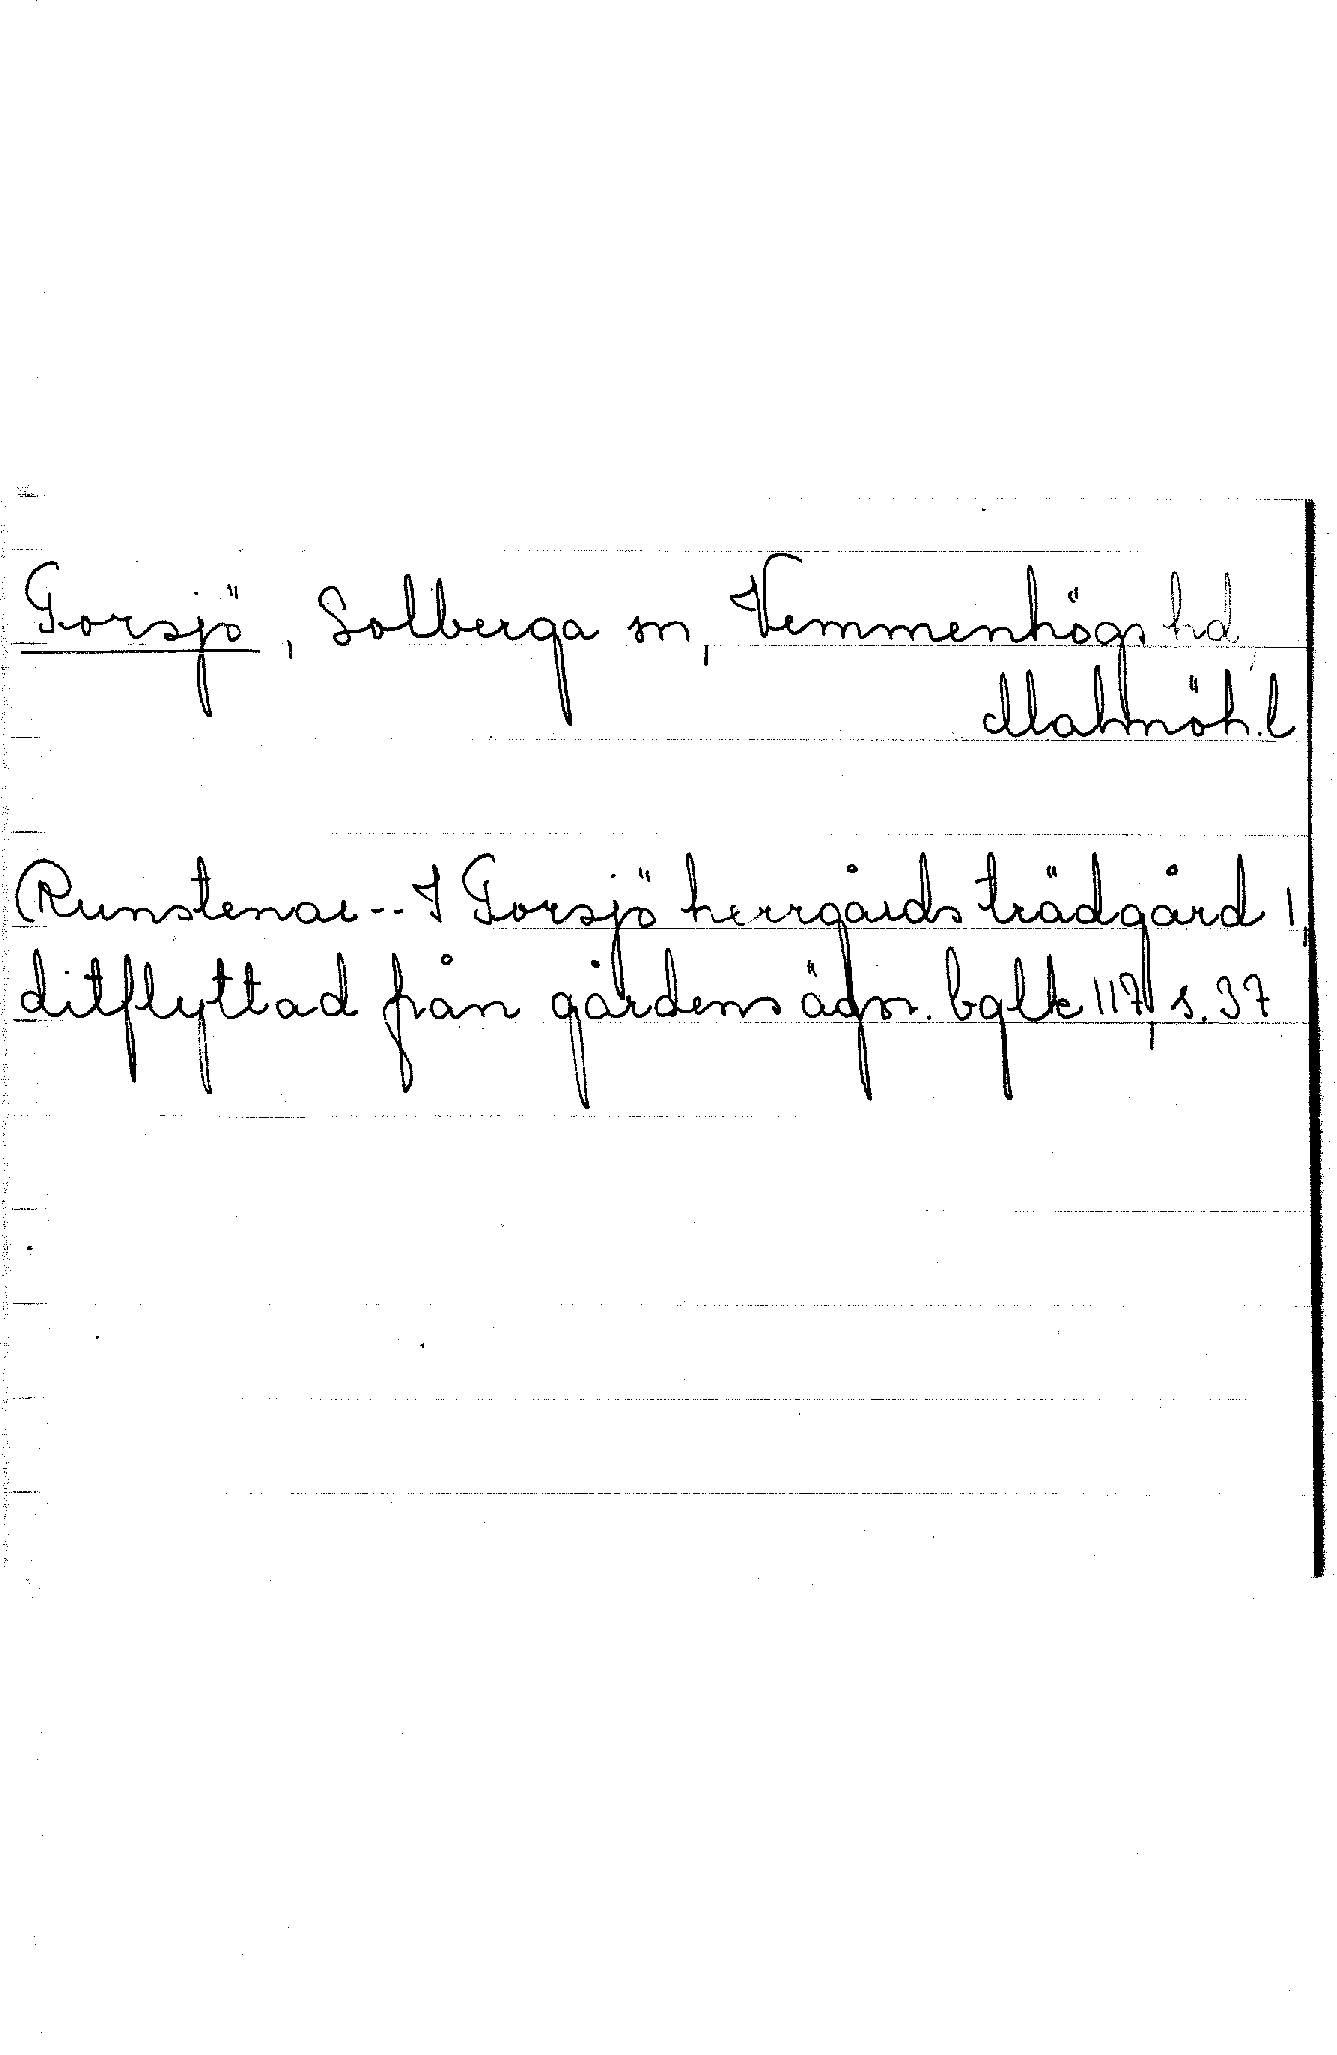 Torsjö, Solberga sn, Vemmenhögs hd,
Malmöh.l
Runstenar -- I Torsjö herrgårds trädgård 1,
ditflyttad från gårdens ägor. bglk 117, s. 37